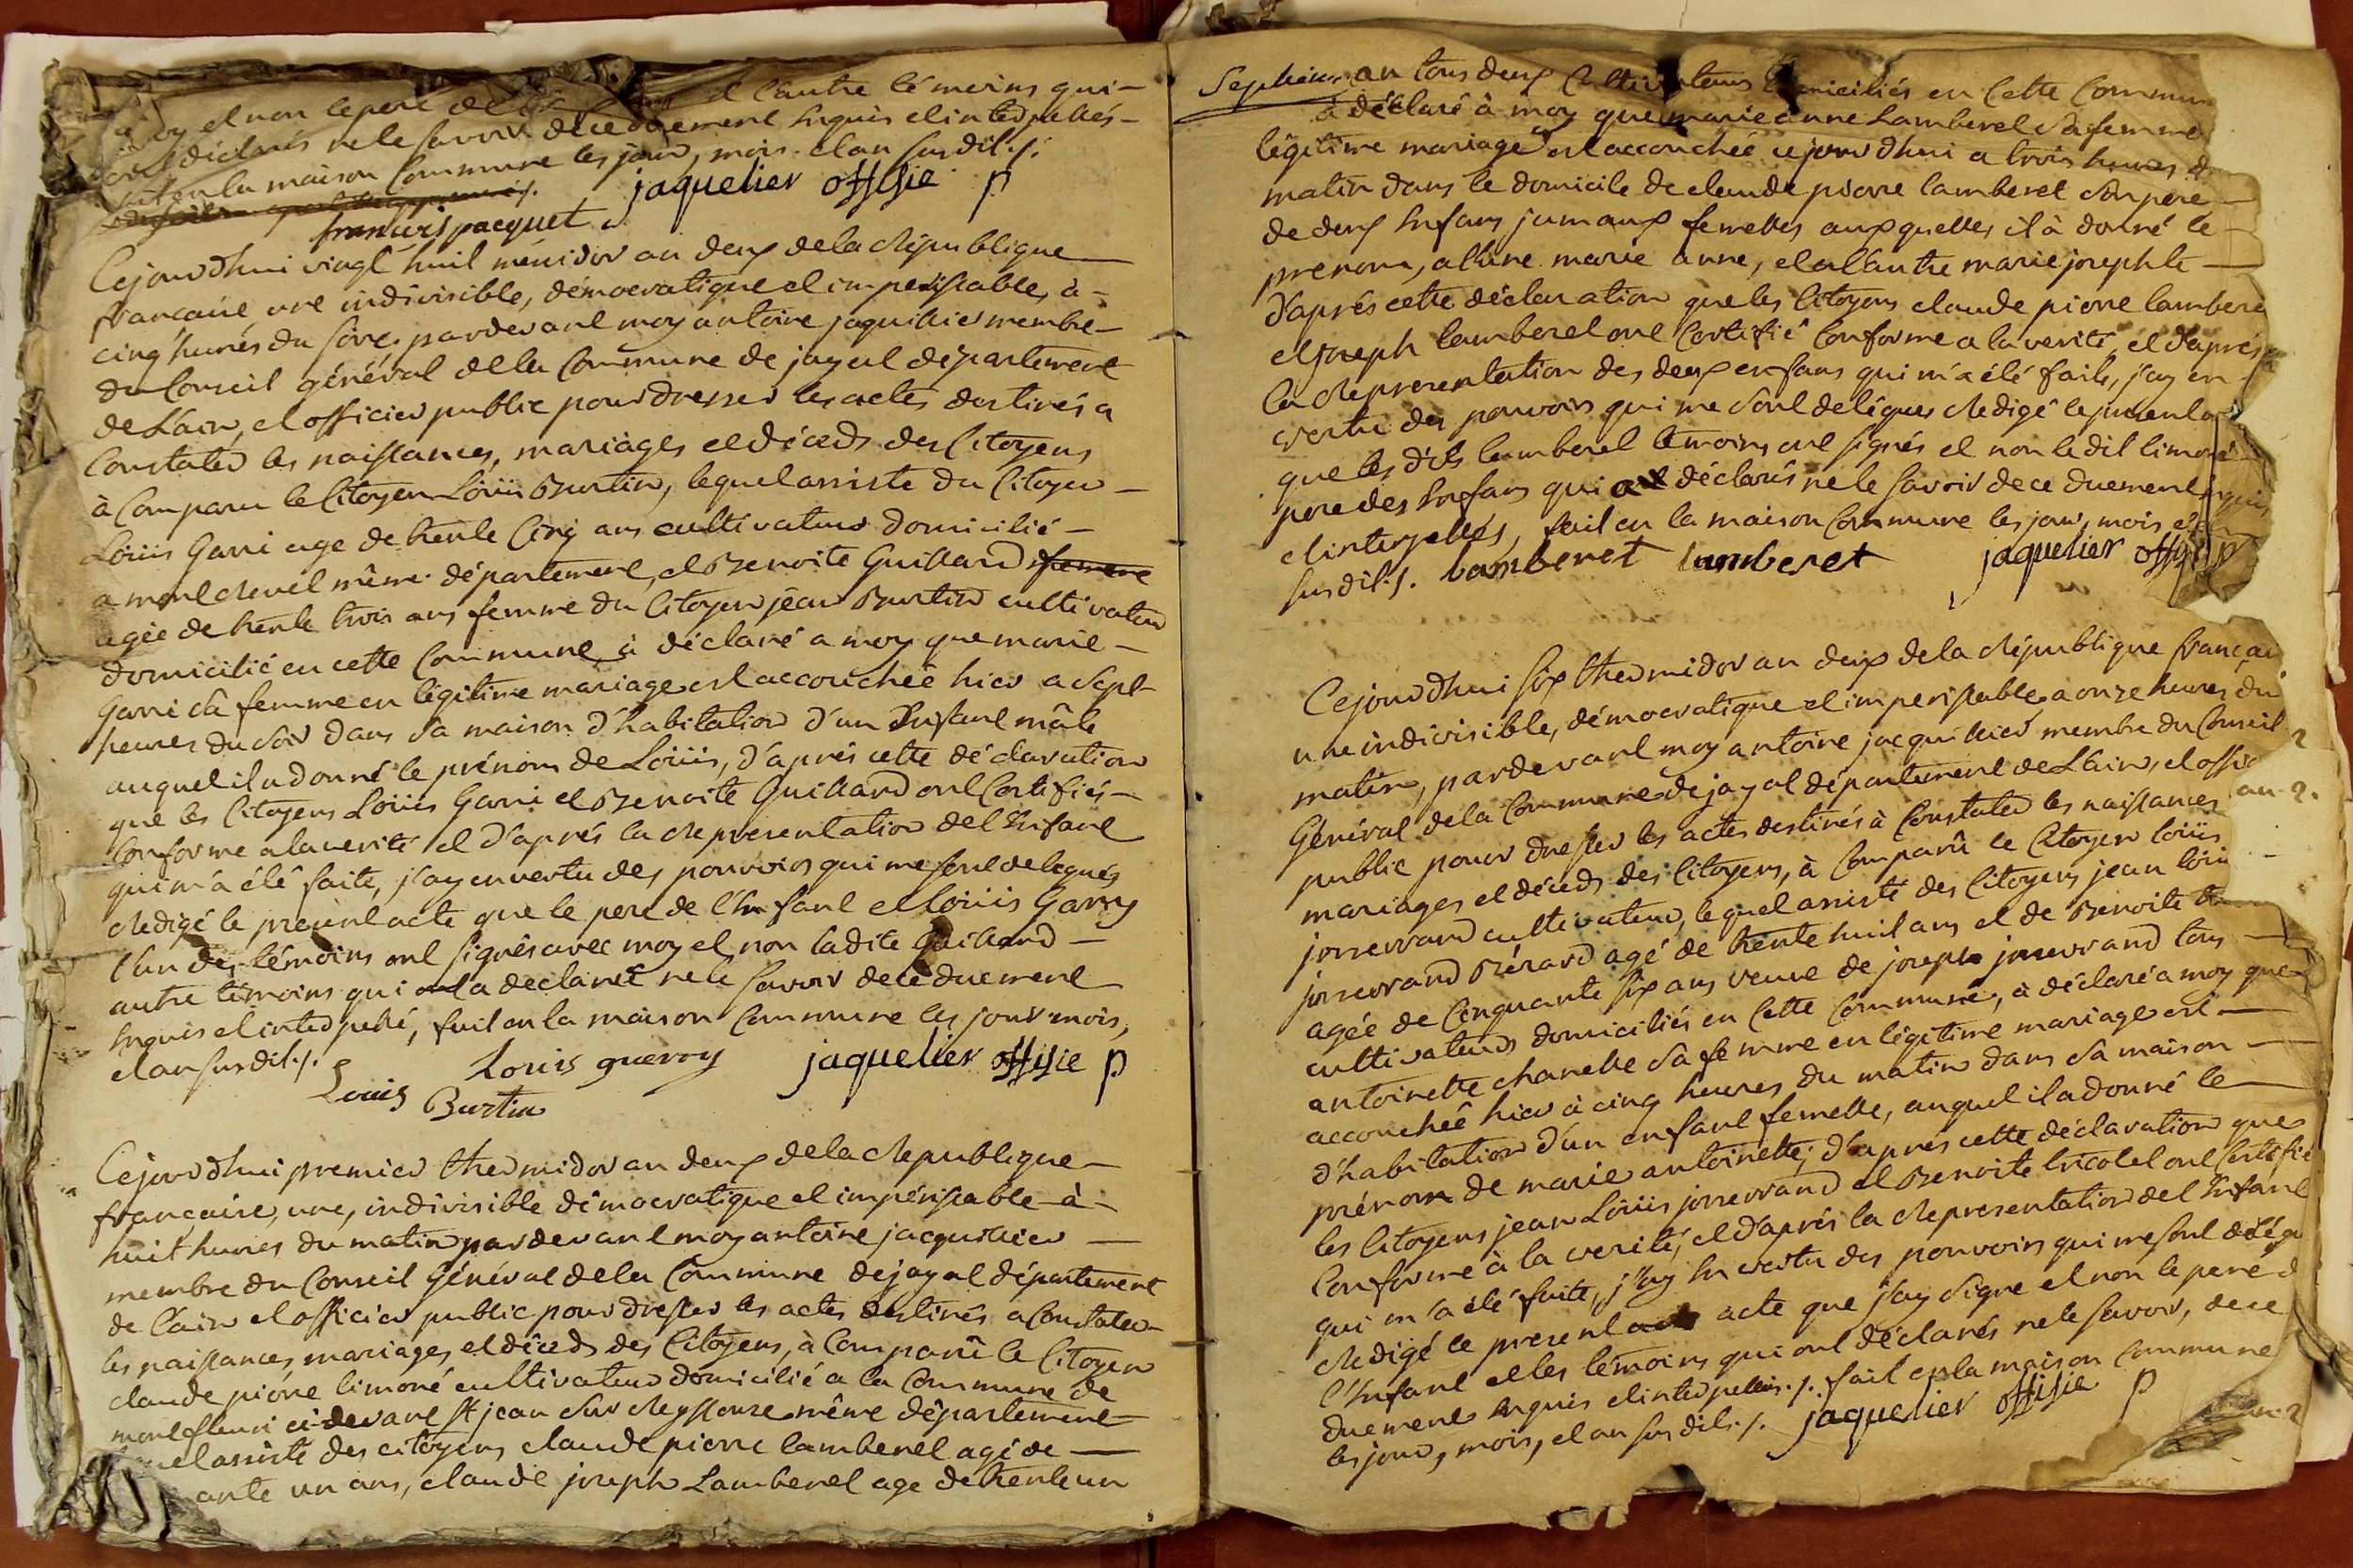 moy et non le pere de l'autre témoins qui
ont déclarés ne le savoir de ce duement Enquis et interpellés
fait en la maison Commune les jour, mois et an susdit ./.
françois pacquet jaquelier offisie p
Cejourdhui vingt huit méssidor an deux de la République
francaise une indivisible, démocratique et imperissable, à
cinq heures du soire, pardevant moy antoine jaquillier membre
du Conseil général de la Commune de jayat département
de Lain, et officier public pour dresser les actes destinés a
Constater les naissances, mariages et déceds des Citoyens
à Comparu le Citoyen Loüis Burtin, lequel assisté du Citoyen
Loüis Garri agé de trente Cinq ans cultivateur domicilié
a mont revel même département, et Benoite Guillard femme
agée de trente trois ans femme du Citoyen jean Burtin cultivateur
domicilié en cette Commune, à déclaré a moy que marie
Garri sa femme en légitime mariage est accouchée hier a sept
heures du soir dans sa maison d'habitation d'un Enfant mâle
auquel il a donné le prénom de Loüis, d'aprés cette déclaration
que les Citoyens Loüis Garri et Benoite Guillard ont Certifiés
Conforme a la verité et d'aprés la Representation de l'Enfant
qui m'a été faite, j'ay en vertu des pouvoirs qui me sont delegués
Redigé le present acte que le pere de l'Enfant et Loüis Garry
l'un des témoins ont signés avec moy et non ladite Guillard
autre témoins qui a declaré ne le savoir de ce duement
Enquis et interpellé, fait en la maison Commune les jour mois,
et an susdit ./. Louis guerry jaquelier offisie p
Louis Burtin
Cejourdhui premier thermidor an deux de la Republique
francaise, une, indivisible démocratique et impérissable à
huit heures du matin pardevant moy antoine jacquillier
membre du Conseil Général de la Commune de jayat département
de l'ain et officier public pour dresser les actes destinés a Constater
les naissances, mariages, et déceds des Citoyens, à Comparû le Citoyen
claude pierre limoné cultivateur domicilié a la Commune de
mont fleuri ci-devant St jean sur Reyssouze même département
lequel assisté des citoyens claude pierre lamberet agé de
ante un ans, claude joseph Lamberet age de trente un
Septieme an tous deux Cultivateurs domiciliés en Cette Commun
à déclaré à moy que marie anne Lamberel sa femme
légitime mariage est accouchée cejourdhui a trois heures d
matin dans le domicile de claude pierre lamberet son pere
de deux Enfans jumaux femelles auxquelles il à donné le
prenom, a l'une marie anne, et a l'autre marie josephte
d'aprés cette déclaration que les Citoyens claude pierre lambere
et joseph lamberel ont Certifié Conforme a la verité, et d'aprés
la Representation des deux enfans qui m'a été faite, j'ay en
vertu des pouvoirs qui me sont delégués Redigé le present
que les dits lamberel témoins ont signés et non le dit limoné
pere des Enfans qui a déclarés ne le savoir de ce duement
et interpellés, fait en la maison Commune les jour, mois et
susdit ./. lamberet lamberet jaquelier offisie p
Cejourdhui six thermidor an deux de la République françai
une indivisible, démocratique et imperissable a onze heures du
matin, pardevant moy antoine jacquillier membre du Conseil
Général de la Commune de jayat département de Lain, et offi
public pour dresser les actes destinés à Constater les naissances
mariages et déceds des Citoyens, à Comparû le Citoyen loüis
josserand cultivateur, lequel assisté des Citoyens jean loüi
josserand Bérard agé de trente huit ans et de Benoite
agée de Cinquante six ans veuve de joseph josserand tous
cultivateurs domiciliés en Cette Commune, à déclaré a moy que
antoinette chanelle sa femme en légitime mariage est
accouchée hier à cinq heures du matin dans sa maison
d'habitation d'un enfant femelle, auquel il a donné le
prénom de marie antoinette; d'aprés cette déclaration que
les Citoyens jean Loüis josserand et Benoite tricolel ont Certifié
Conforme à la verité, et d'aprés la Representation de l'Enfant
qui m'a été faite, j'ay En vertu des pouvoirs qui me sont délégu
Redigé le present acte que j'ay signé et non le pere d
l'Enfant et les témoins qui ont déclarés ne le savoir, de ce
duement enquis et interpellés ./. fait en la maison Commune
les jour, mois, et an susdit ./. jaquelier offisie p
an 2.